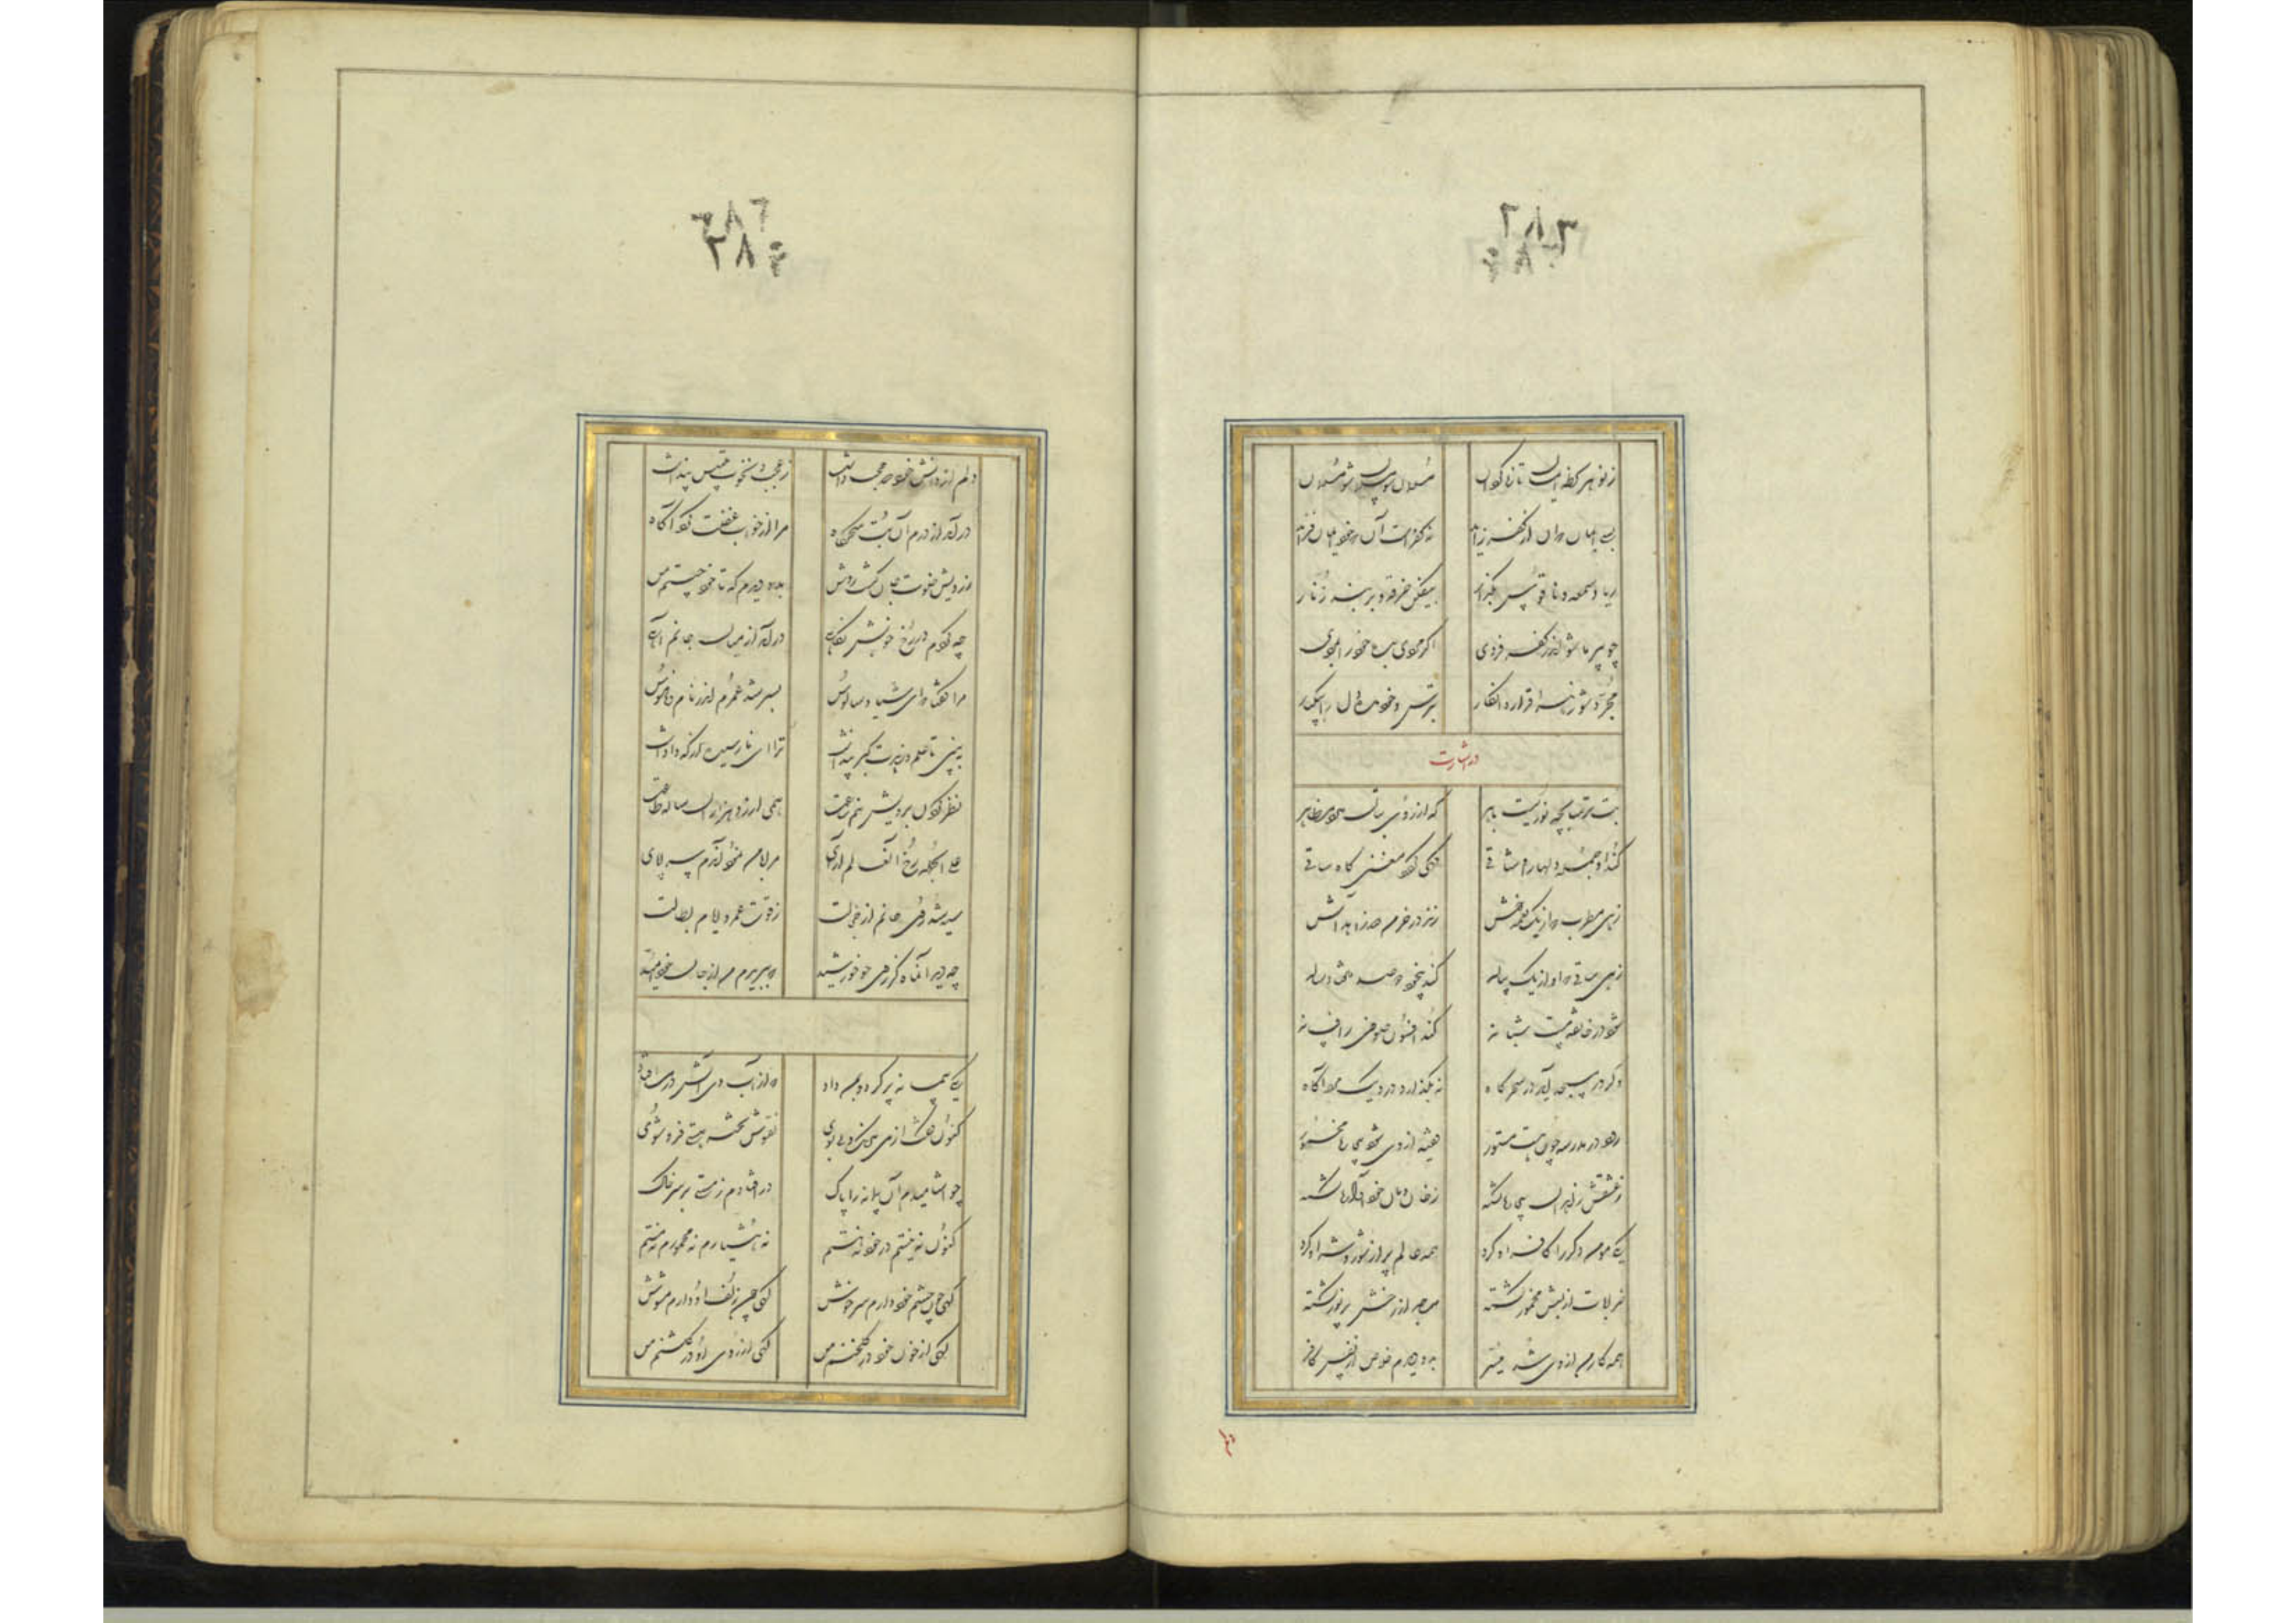 ۲۸۳
ز نو هر لحظه ایمان تازه گردان مسلمان شو مسلمان شو مسلمان
بسی ایمان از کفر زاید نه کفر است آن ایمان فزاید
ریا و سمعه و ناموس بگذار بیفکن خرقه و بربند زنار
چو پیر ما شو اندر کفر فردی اگر مردی
مجرد شو ز اقرار و انکار
اشارت
بت ترسابچه نوریست باهر که از روی بتان دارد مظاهر
کند او جمله دلها را وثاقی گهی گردد مغنی گاه ساقی
زهی مطرب که از یک نغمه خوش زند در خرمن صد زاهد آتش
زهی ساقی که او از یک پیاله کند بیخود دو صد هفتاد ساله
شود در خانقه مست شبانه کند افسون صوفی را فسانه
وگر در مسجد آید در سحرگاه نه بگذارد درو یک مرد آگاه
رود در مدرسه چون مست مستور فقیه از وی شود بیچاره مخمور
ز عشقش زاهدان بیچاره گشته ز خان و مان خود آواره گشته
یکی مومن دگر را کافر او کرد همه عالم پر از شور و شر او کرد
خرابات از لبش معمور گشته مساجد از رخش پر نور گشته
همه کار من از وی شد میسر بدو دیدم خلاص از نفس کافر
۲۸۴
دلم از دانش خود صد حجب داشت ز عجب و نخوت و تلبیس و پنداشت
درآمد از درم آن بت سحرگاه مرا از خواب غفلت کرد آگاه
ز رویش خلوت جان گشت روشن بدو دیدم که تا خود چیستم من
چو کردم در رخ خوبش نگاهی درآمد از میان جانم آهی
مرا گفتا که ای شیاد سالوس بسر شد عمرت اندر نام و ناموس
ببین تا علم و زهد و کبر و پنداشت ترا ای نارسیده از که واداشت
نظر کردن برویش نیم ساعت همی ارزد هزاران ساله طاعت
علی الجمله رخ آن عالم آرای مرا با من نمود آندم سراپای
سیه شد روی جانم از خجالت ز فوت عمر و ایام بطالت
چو دید آن ماه کز روی چو خورشید که ببریدم من از جان خود امید
یکی پیمانه پر کرد و بمن داد که از آب وی آتش در من افتاد
کنون گفت از می بی رنگ و بی بوی نقوش تخته هستی فرو شوی
چو آشامیدم آن پیمانه را پاک در افتادم ز مستی بر سر خاک
کنون نه نیستم در خود نه هستم نه هشیارم نه مخمورم نه مستم
گهی چون چشم خود دارم سرخوش گهی چون زلف او دارم مشوش
گهی از خوی خود در گلخنم من گهی از روی او در گلشنم من